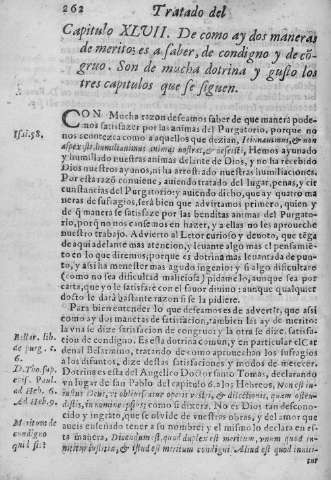 262 Tratado del
Capitulo XLVII. De como ay dos maneras
de merito: es a saber, de condigno y de cõ
gruo. Son de mucha dotrina y gusto los
tres capitulos que se siguen.
CON Mucha razon desseamos saber de que manera pode-
nos satisfazer por las animas del Purgatorio, porque no
Isai. 58.
nos acontezca como a aquellos que dezian, Ieiunauimus, & non
aspexisti: humiliauimus animas nostras, & nescisti, Hemos ayunado
y humillado nuestras animas delante de Dios, y no ha recebido
Dios nuestros ayunos, ni ha nuestras humiliaciones.
Por esta razõ conuiene, auiendo tratado del lugar, penas, y cir
cunstancias del Purgatorio y auiendo dicho, que ay quatro ma
neras de sufragios, será bien que aduirtamos primero, quien y
de q̃ manera se satisfaze por las benditas animas del Purgato-
rio, porq̃ no nos cansemos en hazer, y a ellas no les aproueche
nuestro trabajo. Aduierto al Letor curioso y deuoto, que tẽga
de aqui adelante mas atencion, y leuante algo mas el pensamiẽ-
to en lo que diremos, porque es dotrina mas leuantada de pun-
to, y assi ha menester mas agudo ingenio y si algo dificultare
(como no sea dificultad maliciosa) pidamelo, aunque sea por
carta, que yo le satisfaré con el fauor diuino: aunque qualquier
docto le dará bastante razon si se la pidiere.
Para bien entender lo que desseamos es de aduertir, que assi
como ay dos maneras de satisfacion, tambien las ay de merito:
la vna se dize satisfacion de congruo; y la otra se dize, satisfa-
Bellar. lib.
cion de condigno. Es esta dotrina comun, y en particular el Car
de purg. c.
denal Belarmino, tratando de como aprouechan los sufragios
6.
a los difuntos, dize destas satisfaciones y modos de merecer.
D. Tho. sup.
Dotrina es esta del Angelico Doctor santo Tomas, declarando
epis. Paul.
vn lugar de san Pablo del capitulo 6. a los Hebreos, Non est in-
ad Heb. 6.
iustus Deus, vt obliuiscatur operis vestri, & dilectionis, quam osten-
Ad Heb. 9.
distis, in nomine ipsius; como si dixera. No es Dios tan descono-
cido y ingrato, que se oluide de vuestras obras, y del amor que
aueis enseñado tener a su nombre; y el mismo lo declara en es-
Meritum de
ta manera, Dicendum est, quod duplex est meritum, vnum quod in-
condigno
nititur iustitiæ, & istud est meritum condigni. Aliud est quod
quid sit?